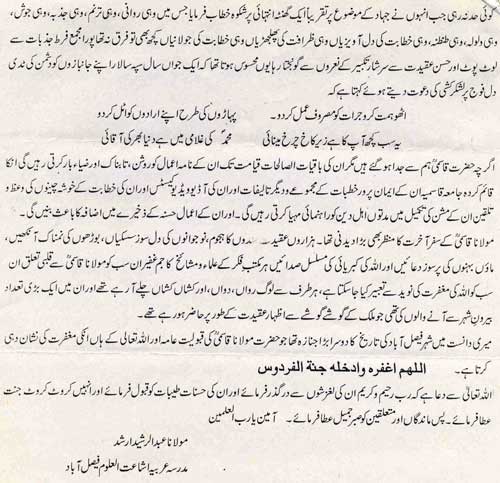 کوئی حد نہ رہی جب انہوں نے جہاد کے موضوع پر تقریباً ایک گھنٹہ انتہائی پر شکوہ خطاب فرمایا جس میں وہی روانی، وہی ترنم، وہی جذبہ، وہی جوش،
وہی ولولہ، وہی طنطنہ، وہی خطابت کی دل آویزیاں وہی ظرافت کی پھلجھڑیاں وہی خطابت کی جولانیاں کچھ بھی تو فرق نہ تھا پورا مجمع فرط جذبات سے
لوٹ پوٹ اور حسن عقیدت سے سرشار تکبیر کے نعروں سے گونجتا رہا یوں محسوس ہوتا تھا کہ ایک جواں سال سپہ سالار اپنے جانبازوں کو دشمن کی ندی
دل فوج پر لشکر کشی کی دعوت دیتے ہوئے کہتا ہے کہ
اٹھو ہمت کرو جرات کو مصروف عمل کر دو۔ پہاڑوں کی طرح اپنے ارادوں کو اٹل کر دو
یہ سب کچھ آپ کا ہے زیر کاخ چرخ مینائی محمدؐ کی غلامی میں ہے دنیا بھر کی آقائی
اگرچہ حضرت قاسمیؒ ہم سے جدا ہو گئے ہیں مگر ان کی باقیات الصالحات قیامت تک ان کے نامہ اعمال کو روشن، تابناک اور ضیاء بار کرتی رہیں گی انکا
قائم کردہ جامعہ قاسمیہ ان کے ایمان پرور خطبات کے مجموعے و دیگر تالیفات اور ان کی آڈیو ویڈیو کیسٹس اور ان کی خطابت کے خوشہ چینوں کی وعظ و
تلقین ان کے مشن کی تکمیل میں مدتوں اہل دین کو راہنمائی مہیا کرتی رہیں گی۔ اور ان کے اعمال حسنہ کے ذخیرے میں اضافہ کا باعث بنیں گی۔
مولانا قاسمیؒ کے سفر آخرت کا منظر بھی بڑا دیدنی تھا۔ ہزاروں عقیدت کا ہجوم، نوجوانوں کی دل سوز سسکیاں، بوڑھوں کی نمناک آنکھیں،
ماؤں بہنوں کی پرسوز دعائیں اور اللہ کی کبریائی کی مسلسل صدائیں ہر مکتب فکر کے علماء و مشائخ کا جم غفیر ان سب کو مولانا قاسمیؒ سے قلبی تعلق ان
سب کو اللہ کی مغفرت کی نوید سے تعبیر کیا جا سکتا ہے، ہر طرف سے لوگ رواں، دواں، اور کشاں کشاں چلے آ رہے تھے اور ان میں ایک بڑی تعداد
بیرون شہر سے آنے والوں کی تھی جو ملک کے گوشے گوشے سے اظہار عقیدت کے طور پر حاضر ہو رہے تھے۔
میری دانست میں شہر فیصل آباد کی تاریخ کا دوسرا بڑا جنازہ تھا جو حضرت مولانا قاسمیؒ کی قبولیت عامہ اور اللہ تعالی کے ہاں انکی مغفرت کی نشان دہی
کرتا ہے۔ اللهم اغفره وادخله جنة الفردوس
اللہ تعالی سے دعا ہے کہ رب رحیم و کریم ان کی لغزشوں سے درگذر فرمائے اور ان کی حسنات طیبات کو قبول فرمائے اور انہیں کروٹ کروٹ جنت
عطا فرمائے۔ پس ماندگان اور متعلقین کو صبر جمیل عطا فرمائے۔ آمین یا رب العلمین
مولانا عبدالرشید ارشد
مدرسہ عربیہ اشاعت العلوم فیصل آباد